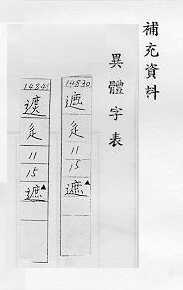 補充資料
異體字表
14830
遮
辵
11
15
遮▲
14831
辵
11
15
遮▲